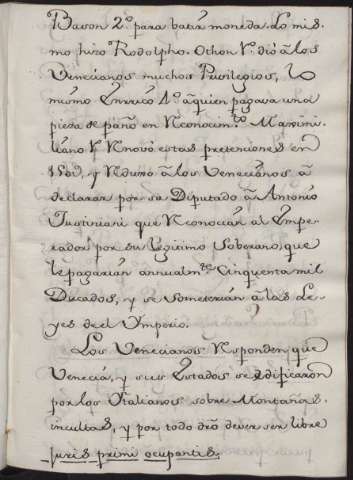 Baron 2.º para batir moneda. Lo mis-
mo hizo Rodolpho. Othon Vº dió à los
Venecianos muchos Privilegios, lo
mismo Enrrico 4.º aquien pagava una
pieda de paño en Rconocim.to Maximi-
liano V Rnovó estas pretenciones en
y Rduxo â los Venecianos â
declarar por su Diputado â Antonio
Justiniani que Rconocian al Empe-
rador por su legitimo Soberano, que
le pagarian annualm.te Cinquenta mil
Ducados, y se someterian â las Le-
yes de el Ymperio.
Los Venecianos Rsponden que
Venecia, y sus Estados se edificaron
por los Ytalianos sobre Montañas
incultas, y por todo dro dever ser libre
juris primi ocupantis.